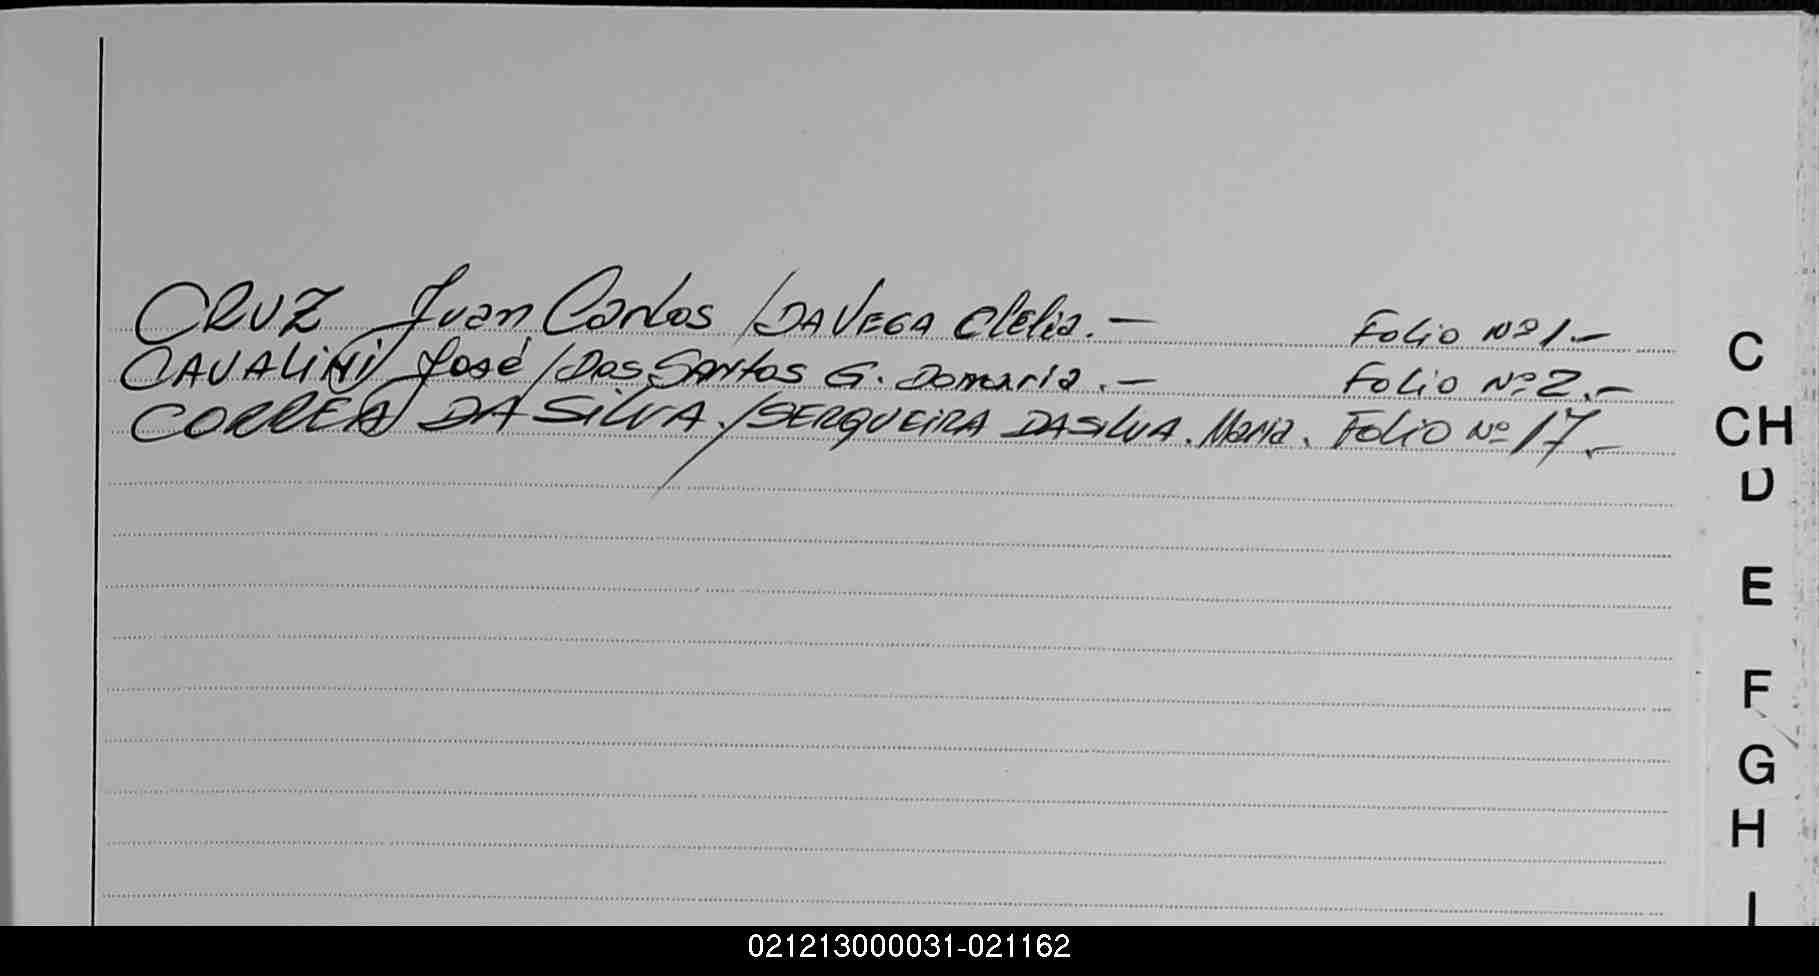 CRUZ Juan Carlos / DA VEGA Clelia. — Folio Nº 1. —
CAVALINI José / Dos Santos G. Domaria. — Folio Nº 2. —
CORRÊA DA SILVA. / SERQUEIRA DA SILVA. Maria. Folio Nº 17. —
C
CH
D
E
F
G
H
I
021213000031-021162